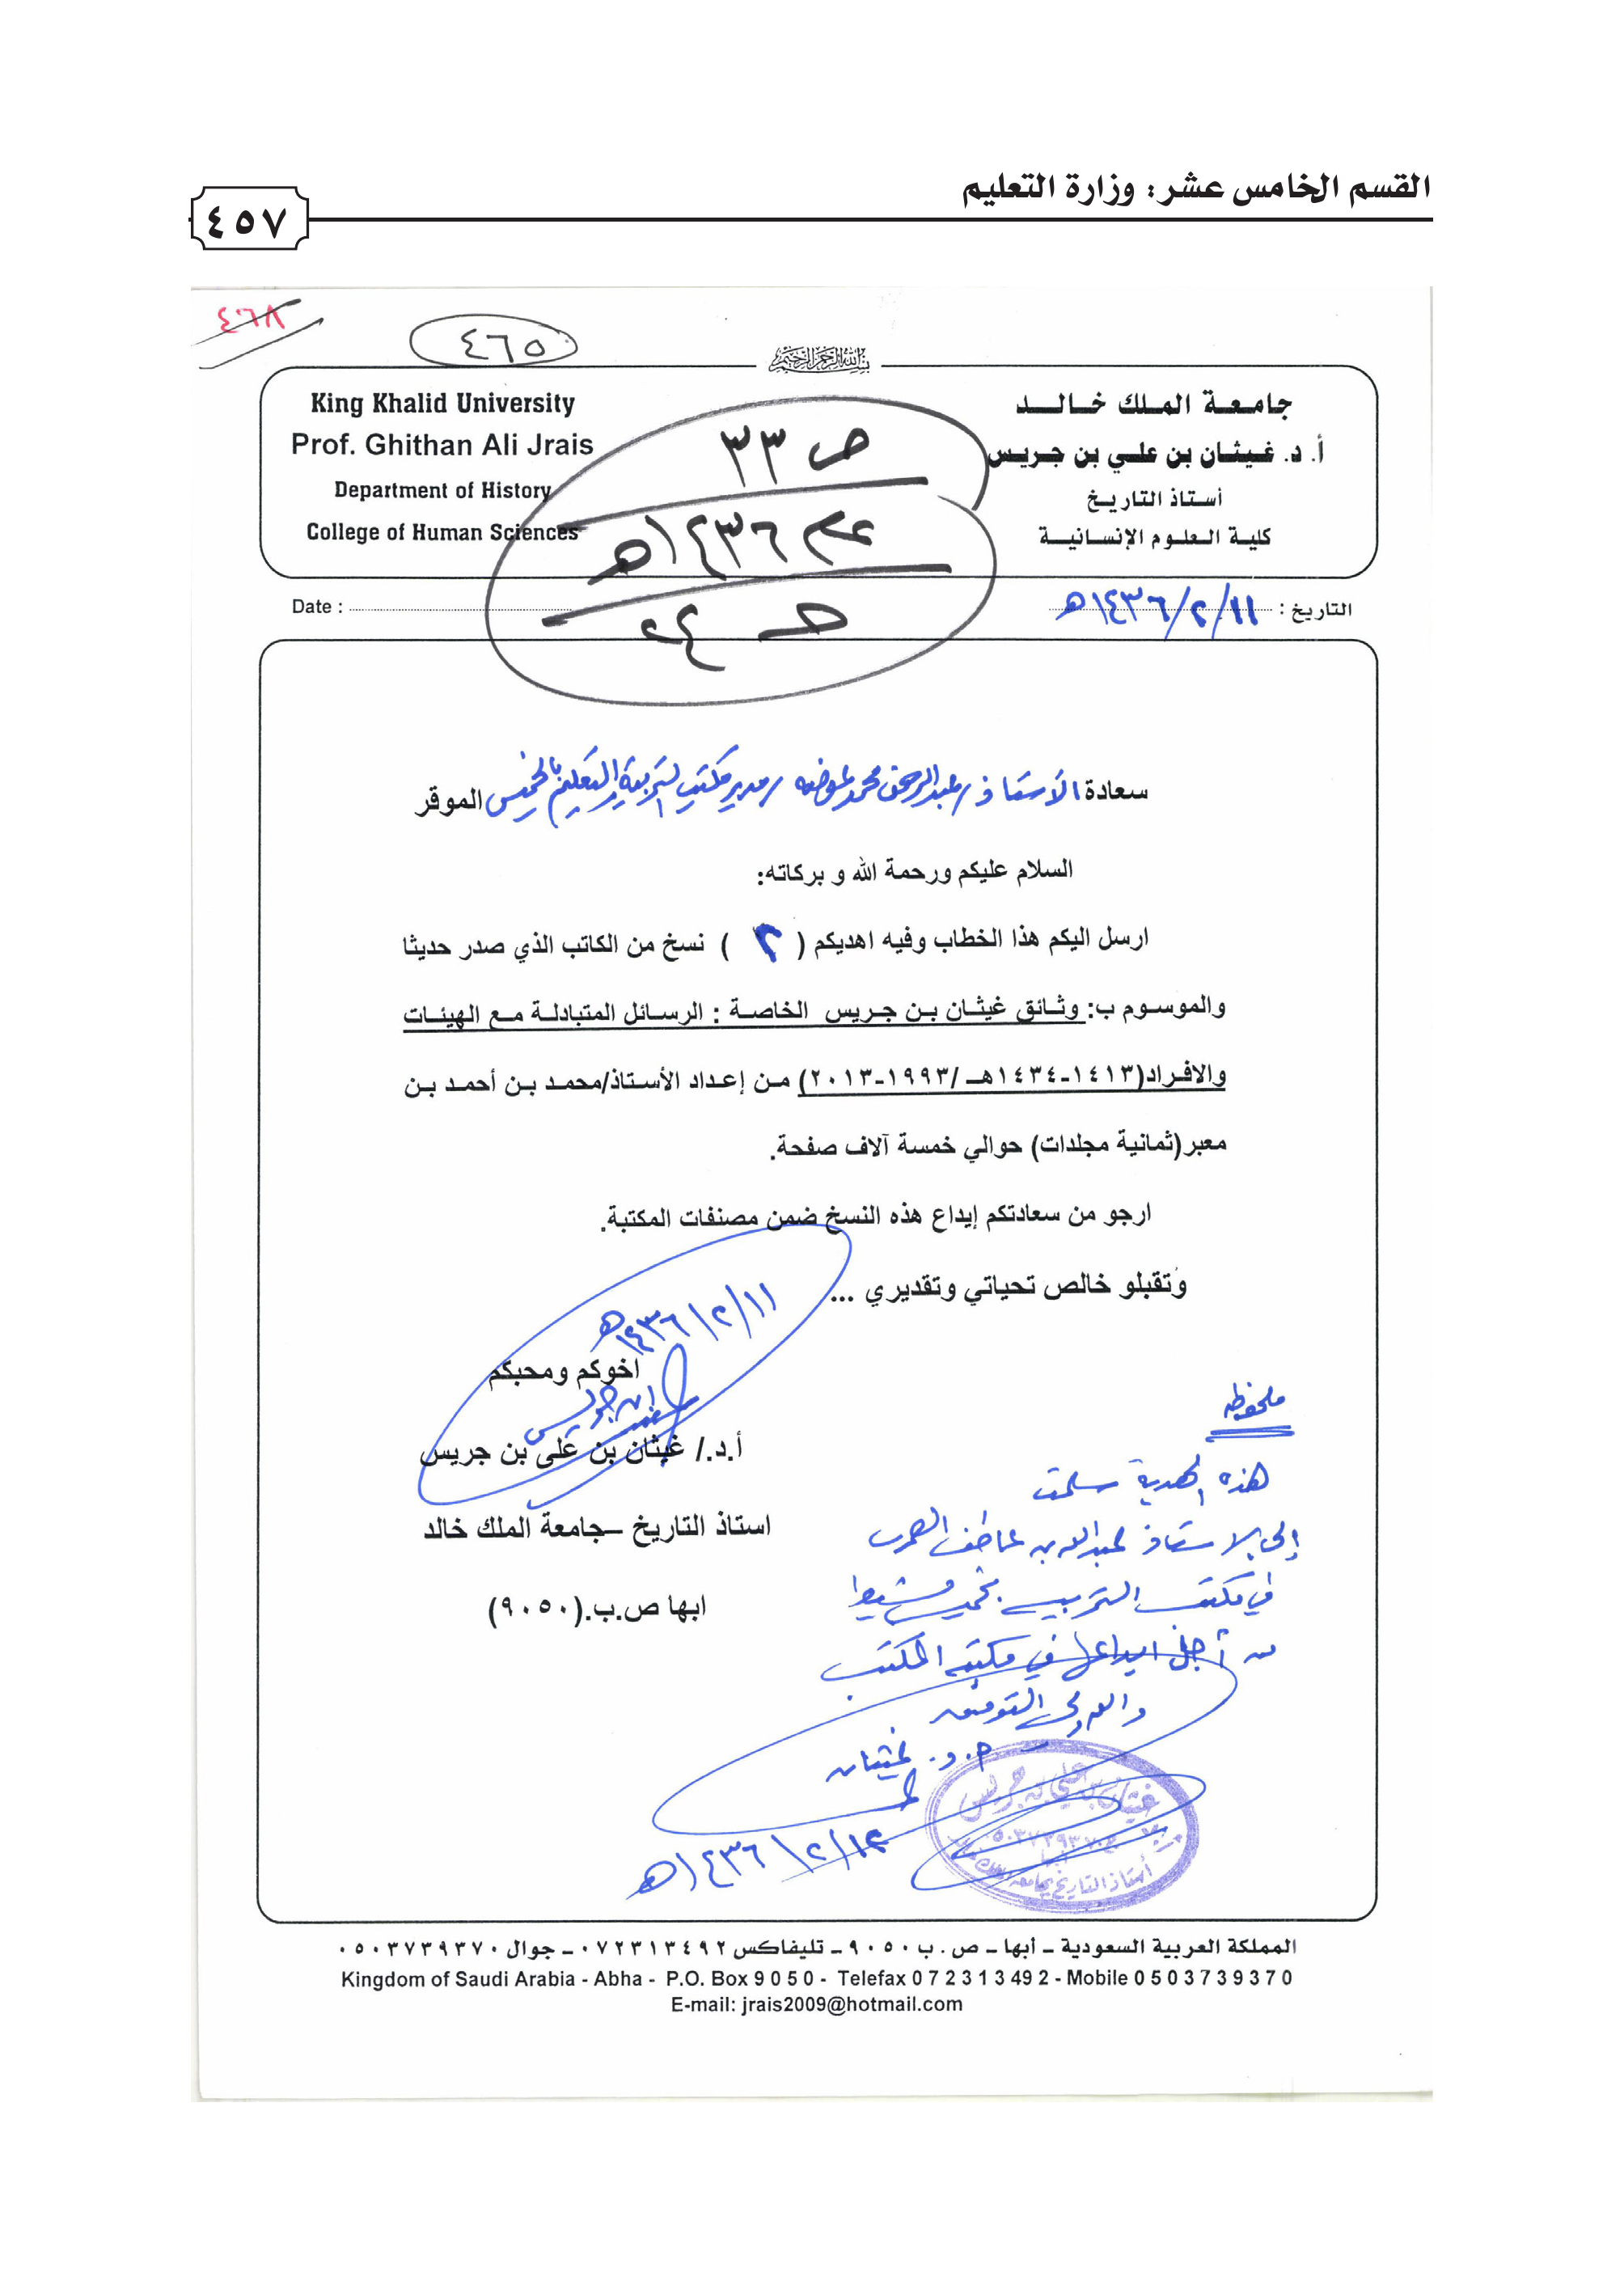 القسم الخامس عشر: وزارة التعليم
٤٥٧
٤٦٨
٤٦٥
بسم الله الرحمن الرحيم
جامعة الملك خالد
أ. د. غيثان بن علي بن جريس
أستاذ التاريخ
كلية العلوم الإنسانية
King Khalid University
Prof. Ghithan Ali Jrais
Department of History
College of Human Sciences
ص ٣٣
١٤٣٦هـ
التاريخ : ١٤٣٦/٢/١١هـ
Date :
سعادة الأستاذ / عبدالرحمن محمد / مدير مكتب التربية والتعليم بالخميس الموقر
السلام عليكم ورحمة الله و بركاته:
ارسل اليكم هذا الخطاب وفيه اهديكم ( ٢ ) نسخ من الكاتب الذي صدر حديثا
والموسوم ب: وثائق غيثان بن جريس الخاصة : الرسائل المتبادلة مع الهيئات
والافراد(١٤١٣-١٤٣٤هـ /١٩٩٣-٢٠١٣) من إعداد الأستاذ/محمد بن أحمد بن
معبر(ثمانية مجلدات) حوالي خمسة آلاف صفحة.
ارجو من سعادتكم إيداع هذه النسخ ضمن مصنفات المكتبة.
وتقبلو خالص تحياتي وتقديري ...
١٤٣٦/٢/١١هـ
اخوكم ومحبكم
ابن جريس
أ.د./ غيثان بن على بن جريس
استاذ التاريخ –جامعة الملك خالد
ابها ص.ب.(٩٠٥٠)
ملحوظه
هذه الهدية سلمت
إلى الاستاذ عبدالله بن عاطف
في مكتب التربيه بخميس مشيط
من أجل ايداعها في مكتبه المكتب
والله ولي التوفيق
أ.د. غيثان
١٤٣٦/٢/١٢هـ
غيثان بن علي بن جريس
٠٥٠٣٧٣٩٣٧٠
أبها
أستاذ التاريخ بجامعة الملك خالد
المملكة العربية السعودية – أبها – ص . ب ٩٠٥٠ – تليفاكس ٠٧٢٣١٣٤٩٢ – جوال ٠٥٠٣٧٣٩٣٧٠
Kingdom of Saudi Arabia - Abha - P.O. Box 9 0 5 0 - Telefax 0 7 2 3 1 3 49 2 - Mobile 0 5 0 3 7 3 9 3 7 0
E-mail: jrais2009@hotmail.com